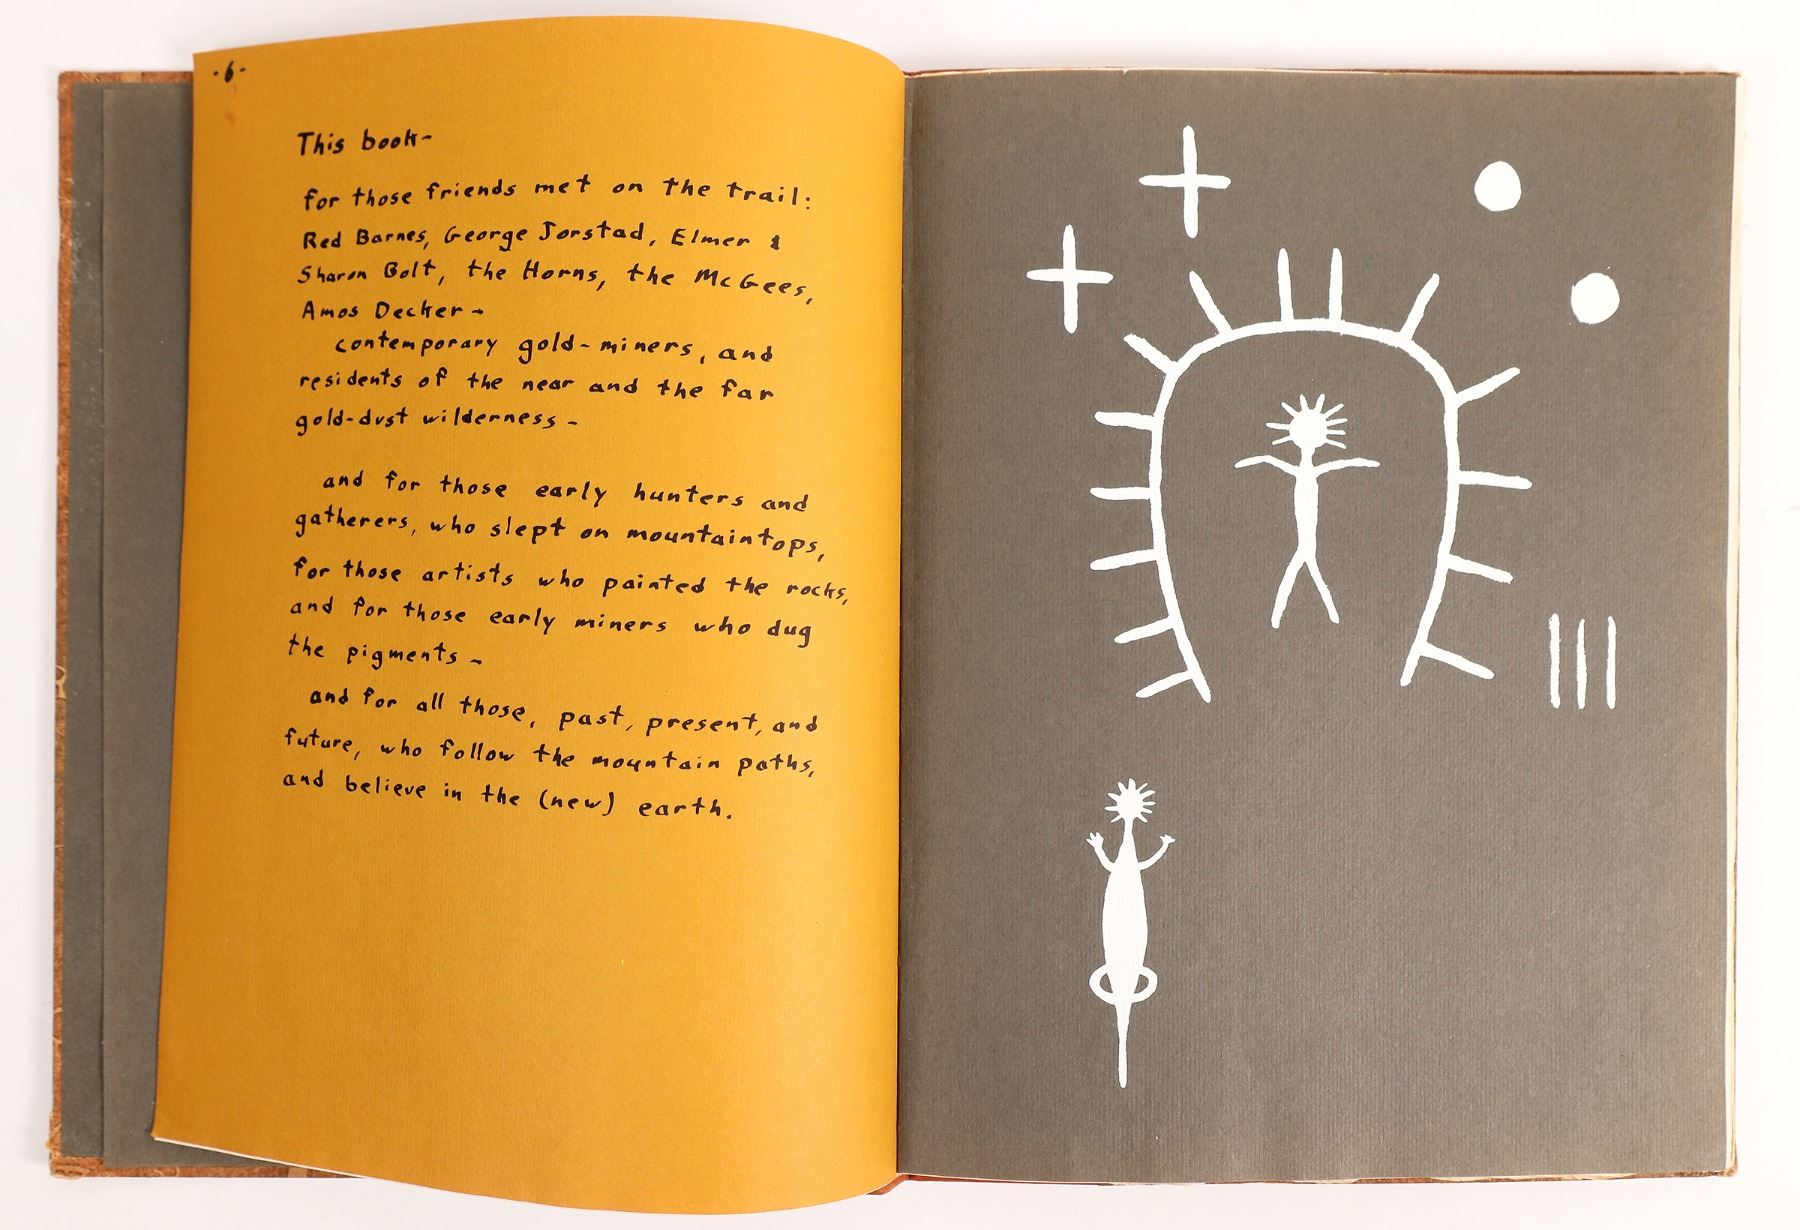 ·6·
This book–
for those friends met on the trail:
Red Barnes, George Jorstad, Elmer &
Sharon Bolt, the Horns, the McGees,
Amos Decker –
contemporary gold-miners, and
residents of the near and the far
gold-dust wilderness –
and for those early hunters and
gatherers, who slept on mountaintops,
for those artists who painted the rocks,
and for those early miners who dug
the pigments –
and for all those, past, present, and
future, who follow the mountain paths,
and believe in the (new) earth.